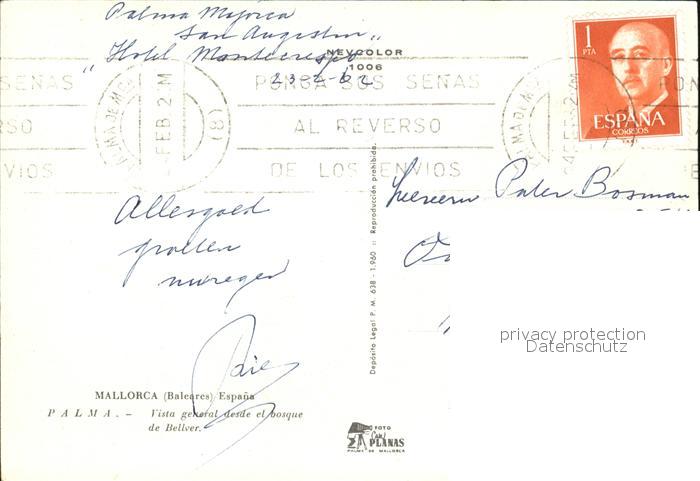 Palma Majorca
San Augustin
"Hotel Montecrespo
23-2-62
NEVCOLOR
1006
1
PTA
ESPAÑA
CORREOS
PONGA SUS SEÑAS
AL REVERSO
DE LOS ENVIOS
SEÑAS
RSO
VIOS
PALMA DE M
FEB. 2 M
(8)
PON
Allesgoed
groeten
Heeren Pater Bosman
Depósito Legal P. M. 638 - 1.960 :: Reproducción prohibida.
privacy protection
Datenschutz
MALLORCA (Baleares) España
PALMA. - Vista general desde el bosque
de Bellver.
FOTO
PLANAS
PALMA DE MALLORCA